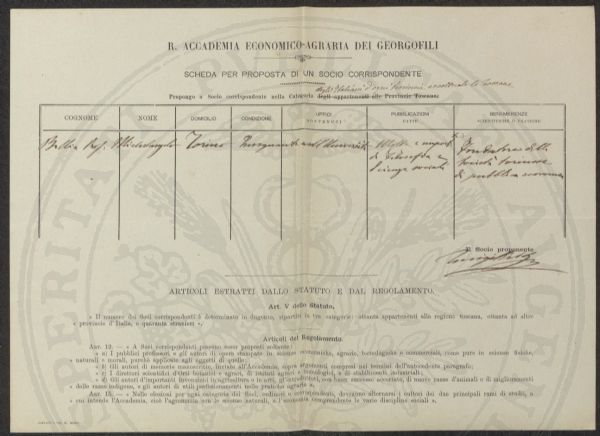 R. ACCADEMIA ECONOMICO-AGRARIA DEI GEORGOFILI
SCHEDA PER PROPOSTA DI UN SOCIO CORRISPONDENTE
degl'Italiani d'ogni Provincia, eccettuata la Toscana
Propongo a Socio corrispondente nella Categoria degli appartenenti alle Provincie Toscane:
COGNOME NOME DOMICILIO CONDIZIONE UFFICI PUBBLICAZIONI BENEMERENZE
SCIENTIFICHE O PRATICHE
Prof. Michelangelo Torino Insegnante Molte e Fondatore della
di Filosofia e Società torinese
Scienze sociali di pubblica economia
Il Socio proponente
ARTICOLI ESTRATTI DALLO STATUTO E DAL REGOLAMENTO.
Art. V dello Statuto.
« Il numero dei Soci corrispondenti è determinato in dugento, ripartiti in tre categorie: ottanta appartenenti alla regione toscana, ottanta ad altre
« provincie d'Italia, e quaranta stranieri ».
Articoli del Regolamento.
Art. 12. — « A Soci corrispondenti possono esser proposti soltanto:
« a) I pubblici professori e gli autori di opere stampate in scienze economiche, agrarie, tecnologiche o commerciali, come pure in scienze fisiche,
« naturali e morali, purchè applicate agli oggetti di quelle;
« b) Gli autori di memorie manoscritte, inviate all'Accademia, sopra argomenti compresi nei termini dell'antecedente paragrafo;
« c) I direttori scientifici d'Orti botanici e agrari, di istituti agrari e tecnologici, e di stabilimenti industriali;
« d) Gli autori d'importanti invenzioni in agricoltura o in arti, gl'introduttori, con buon successo accertato, di nuove razze d'animali e di miglioramenti
« delle razze indigene, e gli autori di utili perfezionamenti nelle pratiche agrarie ».
Art. 15. — « Nelle elezioni per ogni categoria dei Soci, ordinari e corrispondenti, devono alternarsi i cultori dei due principali rami di studio, a
« cui intende l'Accademia, cioè l'agronomia con le scienze naturali, e l'economia comprendente le varie discipline sociali ».